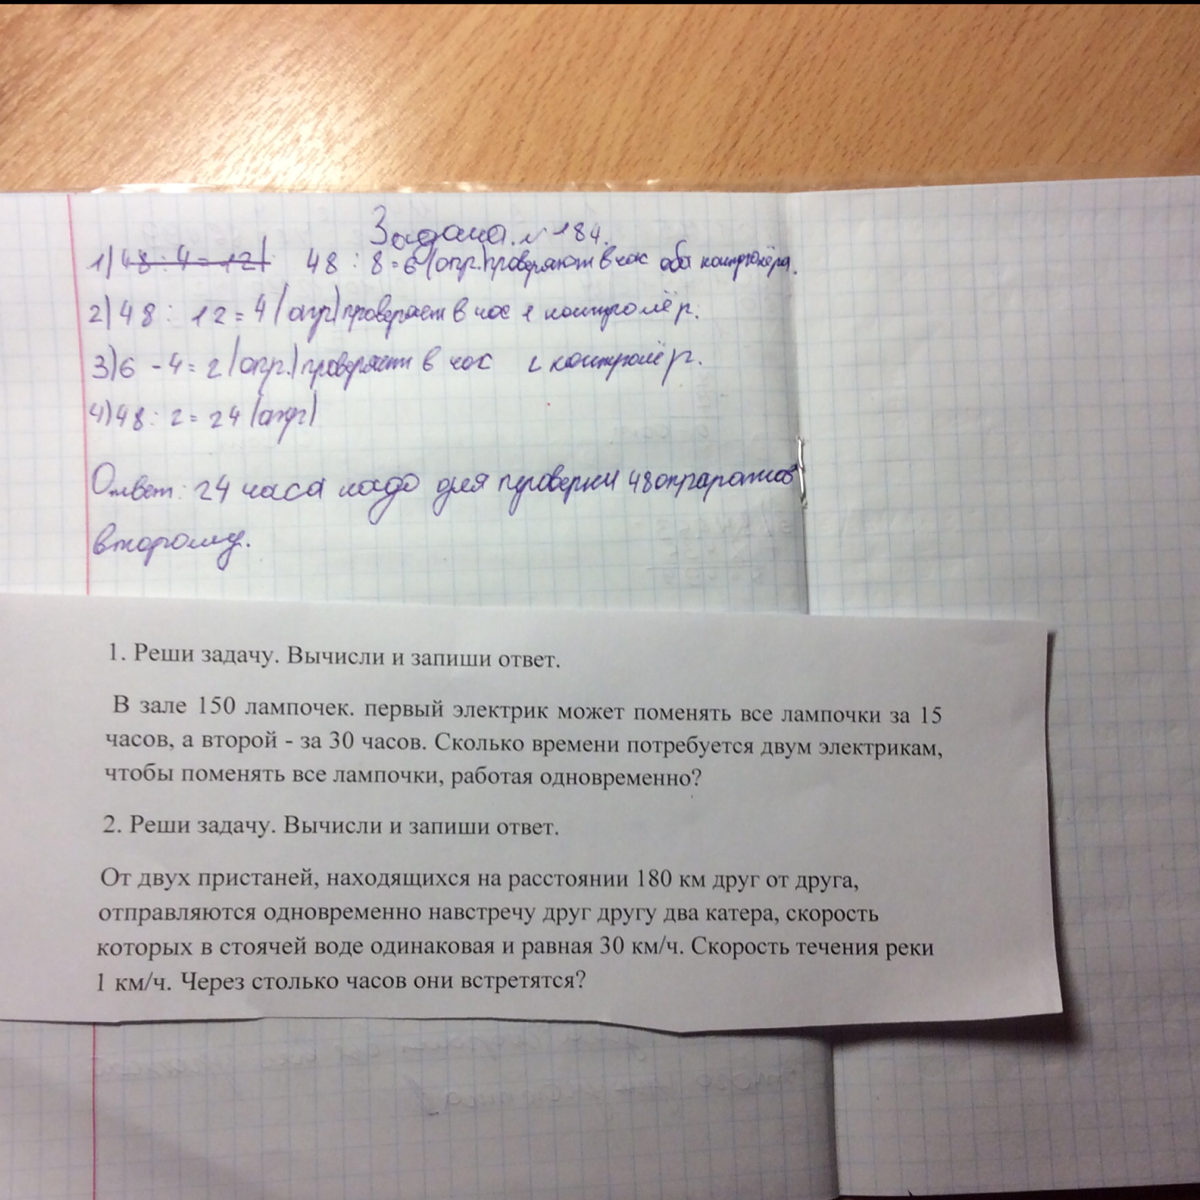 Задача № 184.
1) 48 : 4 = 12 | 48 : 8 = 6 (апр) проверяют в час оба контролёра.
2) 48 : 12 = 4 (апр) проверяет в час 1 контролёр.
3) 6 - 4 = 2 (апр.) проверяет в час 2 контролёр.
4) 48 : 2 = 24 (апр)
Ответ: 24 часа надо для проверки 48 апраратов
второму.
1. Реши задачу. Вычисли и запиши ответ.
В зале 150 лампочек. первый электрик может поменять все лампочки за 15
часов, а второй - за 30 часов. Сколько времени потребуется двум электрикам,
чтобы поменять все лампочки, работая одновременно?
2. Реши задачу. Вычисли и запиши ответ.
От двух пристаней, находящихся на расстоянии 180 км друг от друга,
отправляются одновременно навстречу друг другу два катера, скорость
которых в стоячей воде одинаковая и равная 30 км/ч. Скорость течения реки
1 км/ч. Через столько часов они встретятся?